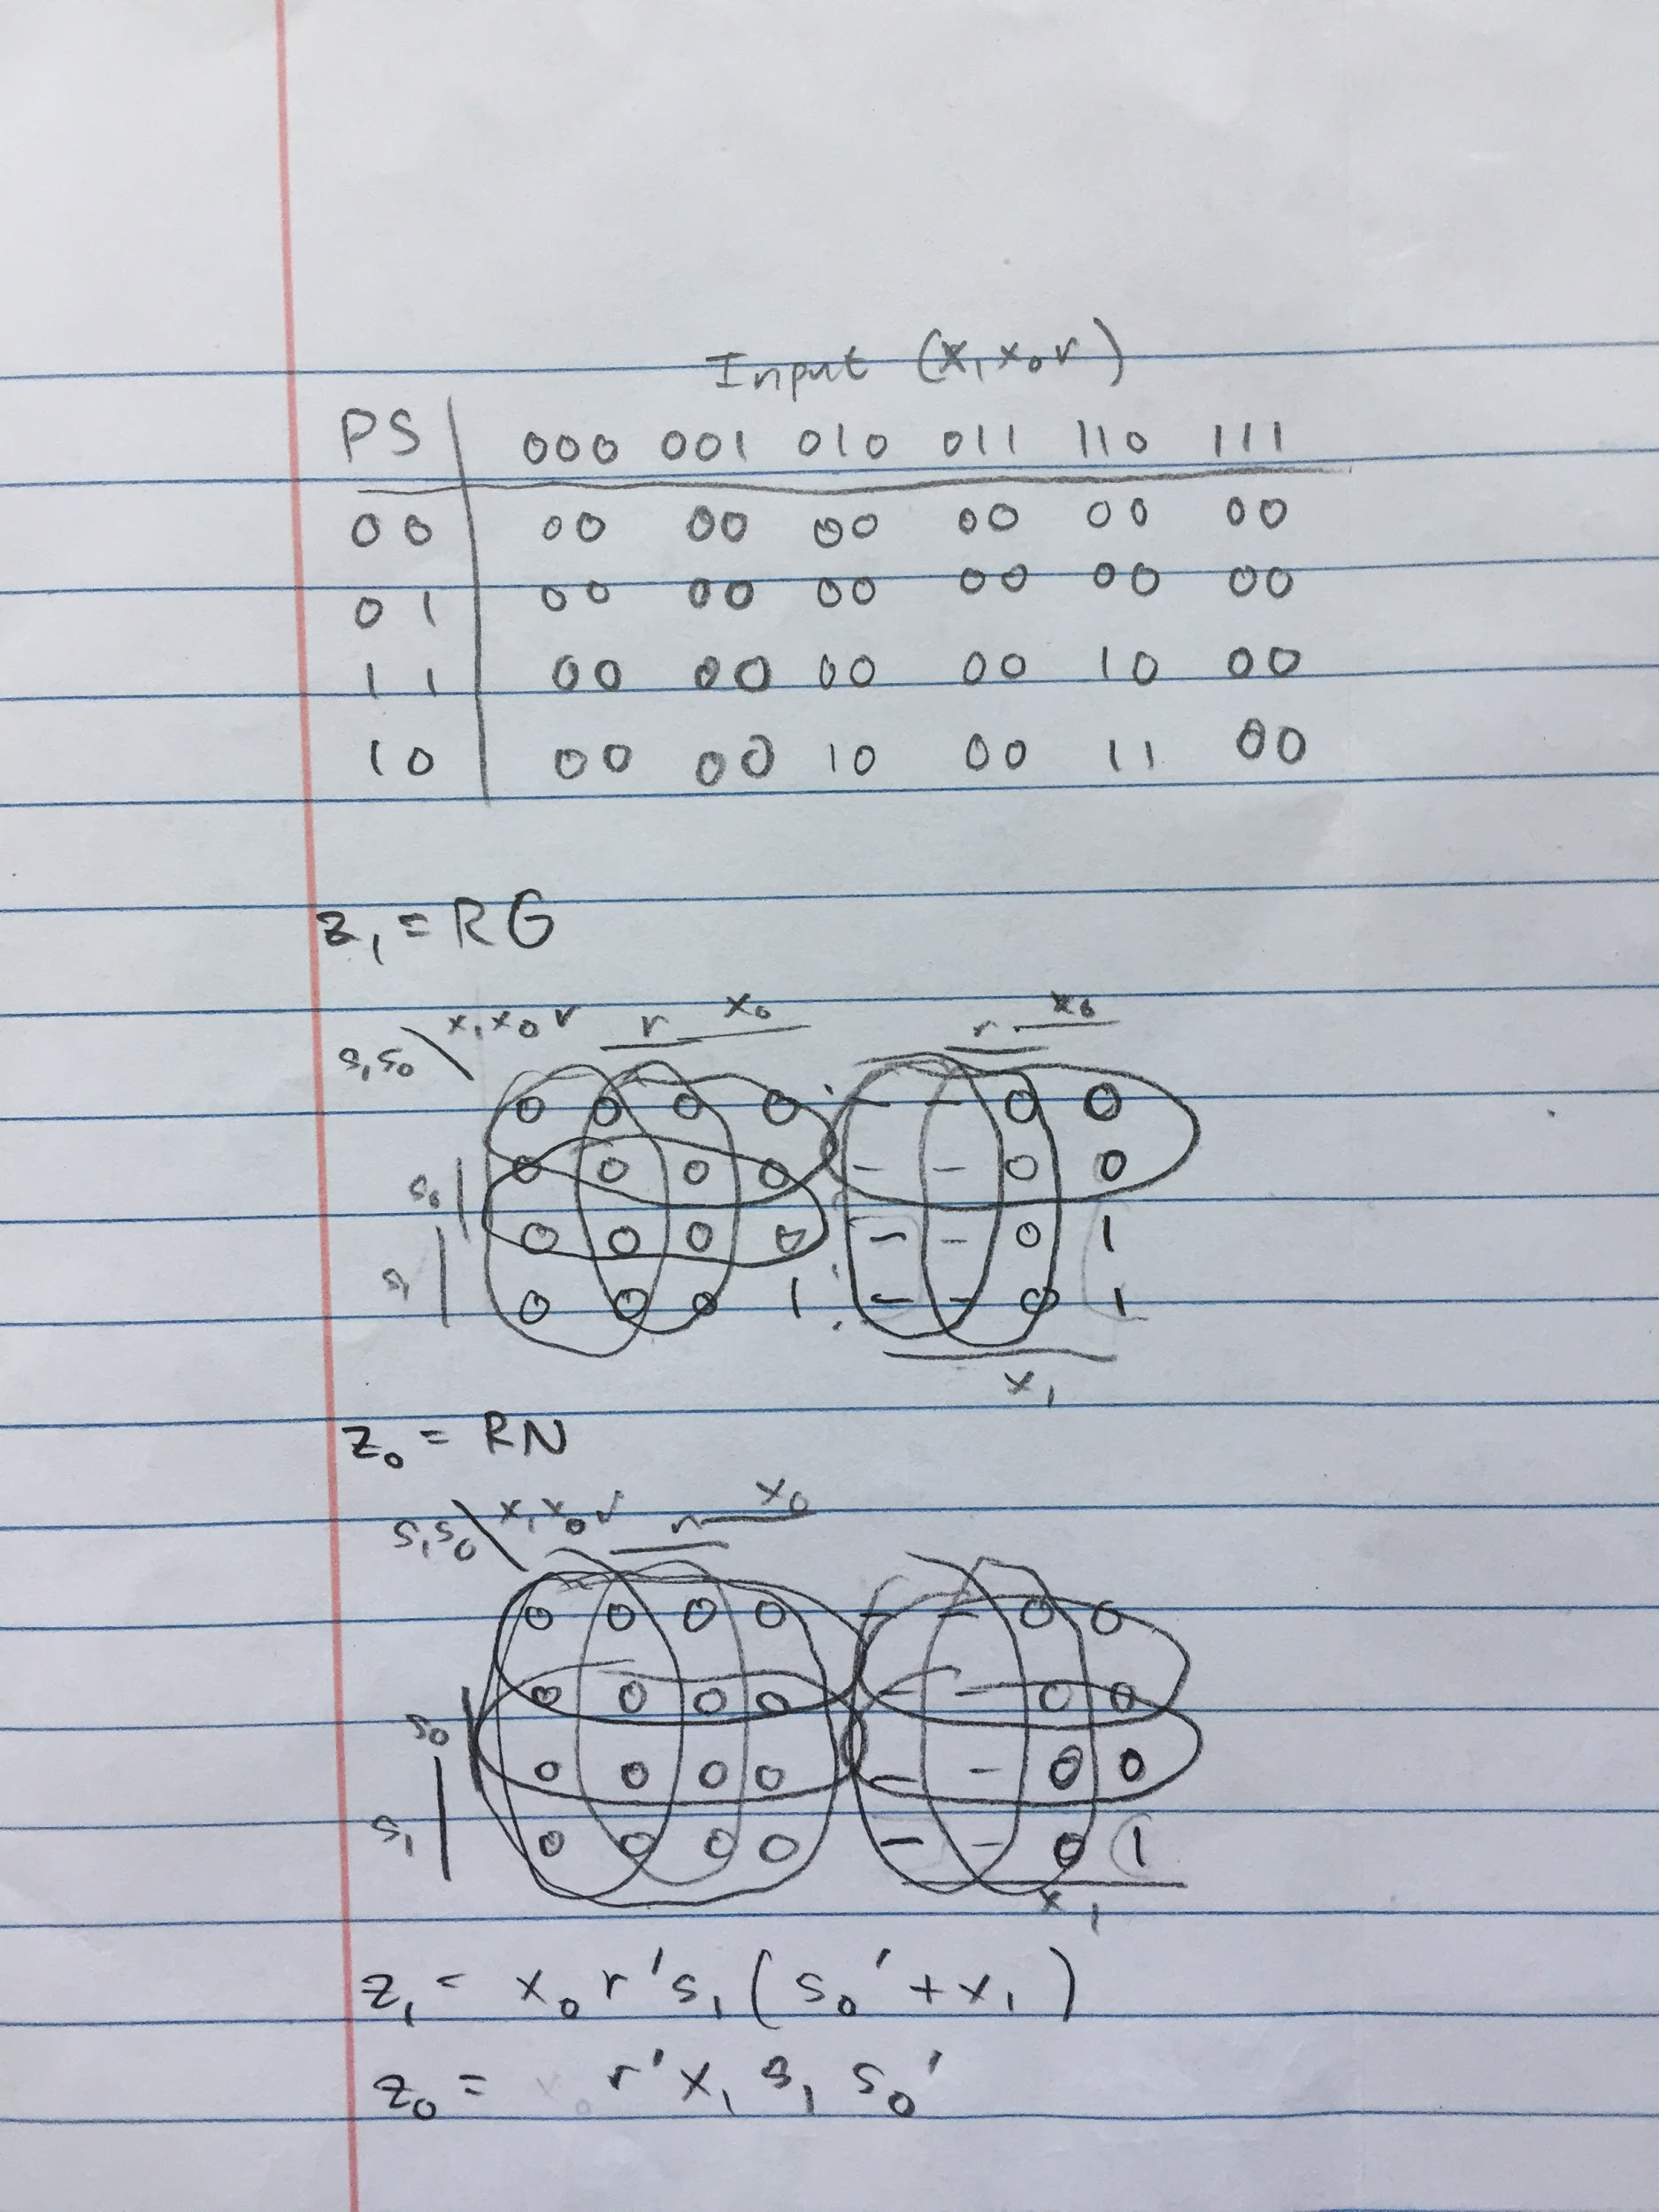 Input (x₁x₀r)
PS 000 001 010 011 110 111
00 00 00 00 00 00 00
01 00 00 00 00 00 00
11 00 00 00 00 10 00
10 00 00 10 00 11 00
z₁ = RG
x₀ x₀
s₁s₀ \ x₁x₀r r r
0 0 0 0 - - 0 0
0 0 0 0 - - 0 0
s₀
0 0 0 0 - - 0 1
s₁
0 0 0 1 - - 0 1
x₁
z₀ = RN
x₀
s₁s₀ \ x₁x₀r r
0 0 0 0 - - 0 0
0 0 0 0 - - 0 0
s₀
0 0 0 0 - - 0 0
s₁ 0 0 0 0 - - 0 1
x₁
z₁ = x₀r's₁(s₀'+x₁)
z₀ = r'x₁s₁s₀'